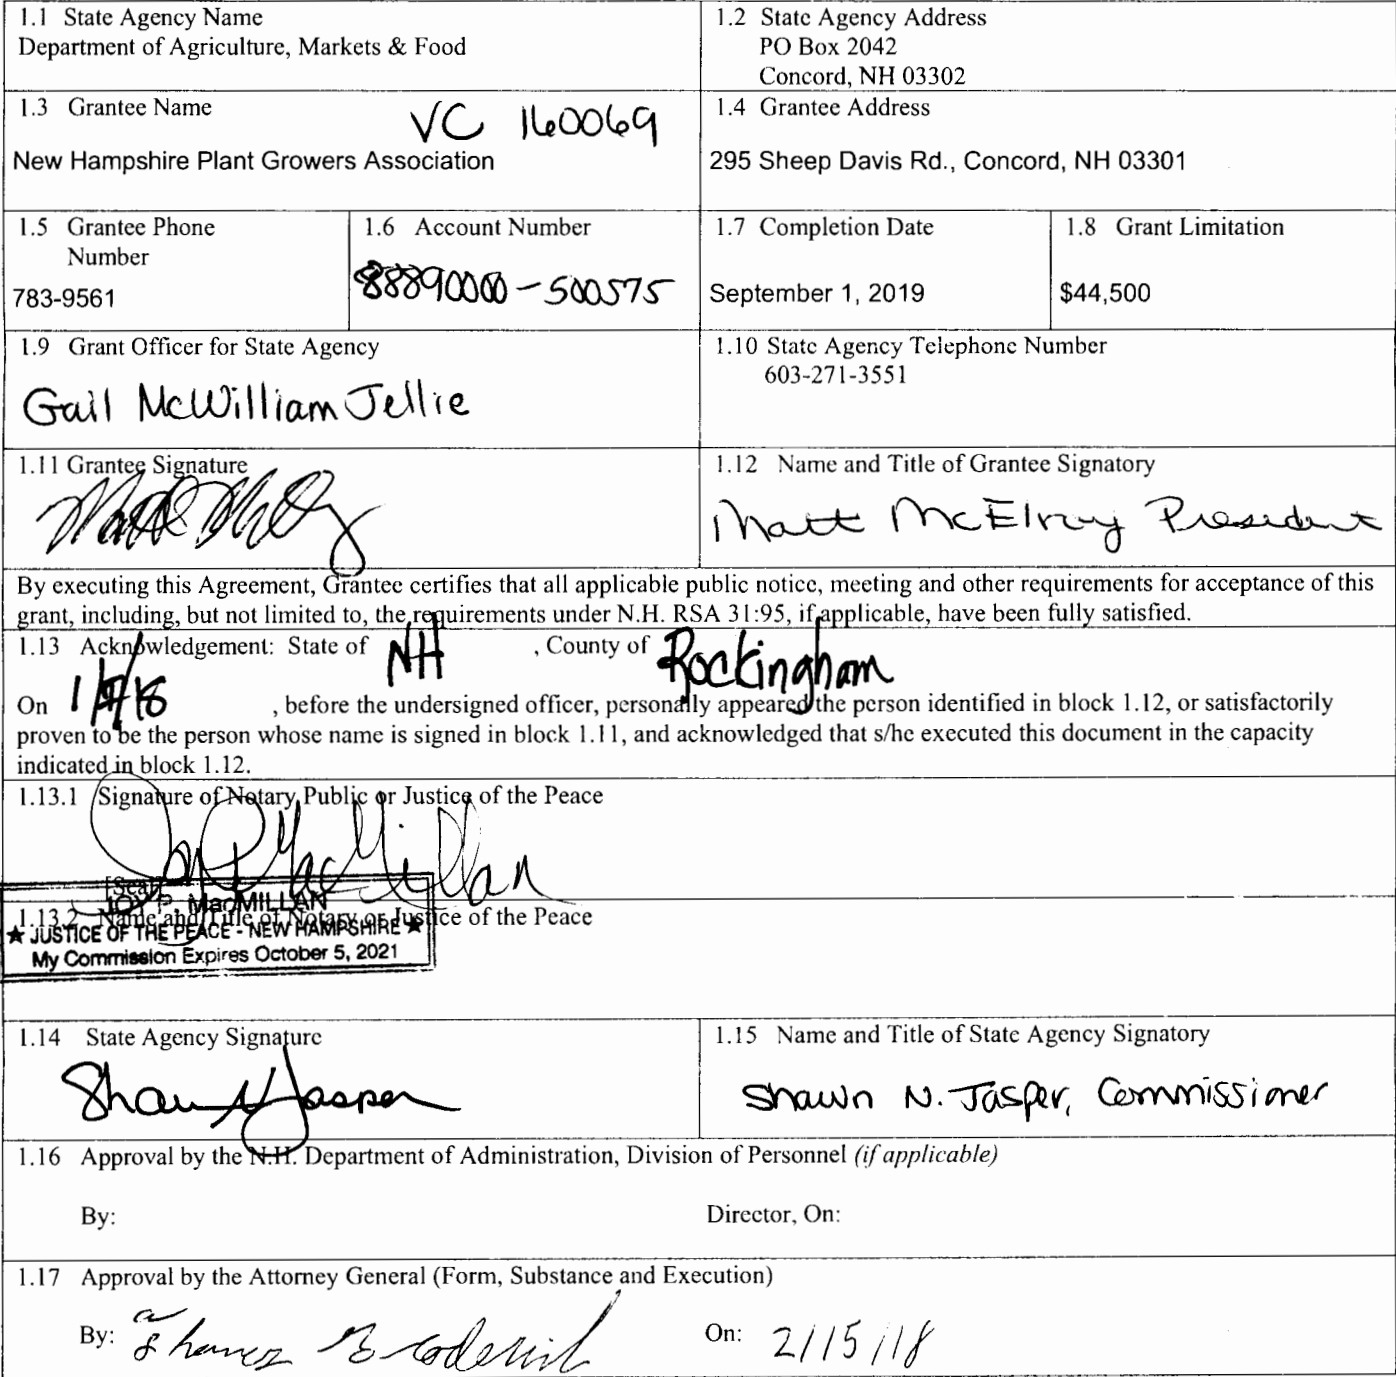 1.1 State Agency Name
Department of Agriculture, Markets & Food
1.2 State Agency Address
PO Box 2042
Concord, NH 03302
1.3 Grantee Name
VC 160069
New Hampshire Plant Growers Association
1.4 Grantee Address
295 Sheep Davis Rd., Concord, NH 03301
1.5 Grantee Phone
Number
783-9561
1.6 Account Number
88890000-500575
1.7 Completion Date
September 1, 2019
1.8 Grant Limitation
$44,500
1.9 Grant Officer for State Agency
Gail McWilliam Jellie
1.10 State Agency Telephone Number
603-271-3551
1.11 Grantee Signature
1.12 Name and Title of Grantee Signatory
Matt McElroy President
By executing this Agreement, Grantee certifies that all applicable public notice, meeting and other requirements for acceptance of this
grant, including, but not limited to, the requirements under N.H. RSA 31:95, if applicable, have been fully satisfied.
1.13 Acknowledgement: State of NH , County of Rockingham
On , before the undersigned officer, personally appeared the person identified in block 1.12, or satisfactorily
proven to be the person whose name is signed in block 1.11, and acknowledged that s/he executed this document in the capacity
indicated in block 1.12.
1.13.1 Signature of Notary Public or Justice of the Peace
Joy P MacMillan
[Seal]
JOY P. MacMILLAN
1.13.2 Name and Title of Notary or Justice of the Peace
★ JUSTICE OF THE PEACE - NEW HAMPSHIRE ★
My Commission Expires October 5, 2021
1.14 State Agency Signature
Shawn N Jasper
1.15 Name and Title of State Agency Signatory
Shawn N. Jasper, Commissioner
1.16 Approval by the N.H. Department of Administration, Division of Personnel (if applicable)
By:
Director, On:
1.17 Approval by the Attorney General (Form, Substance and Execution)
By:
On: 2/15/18